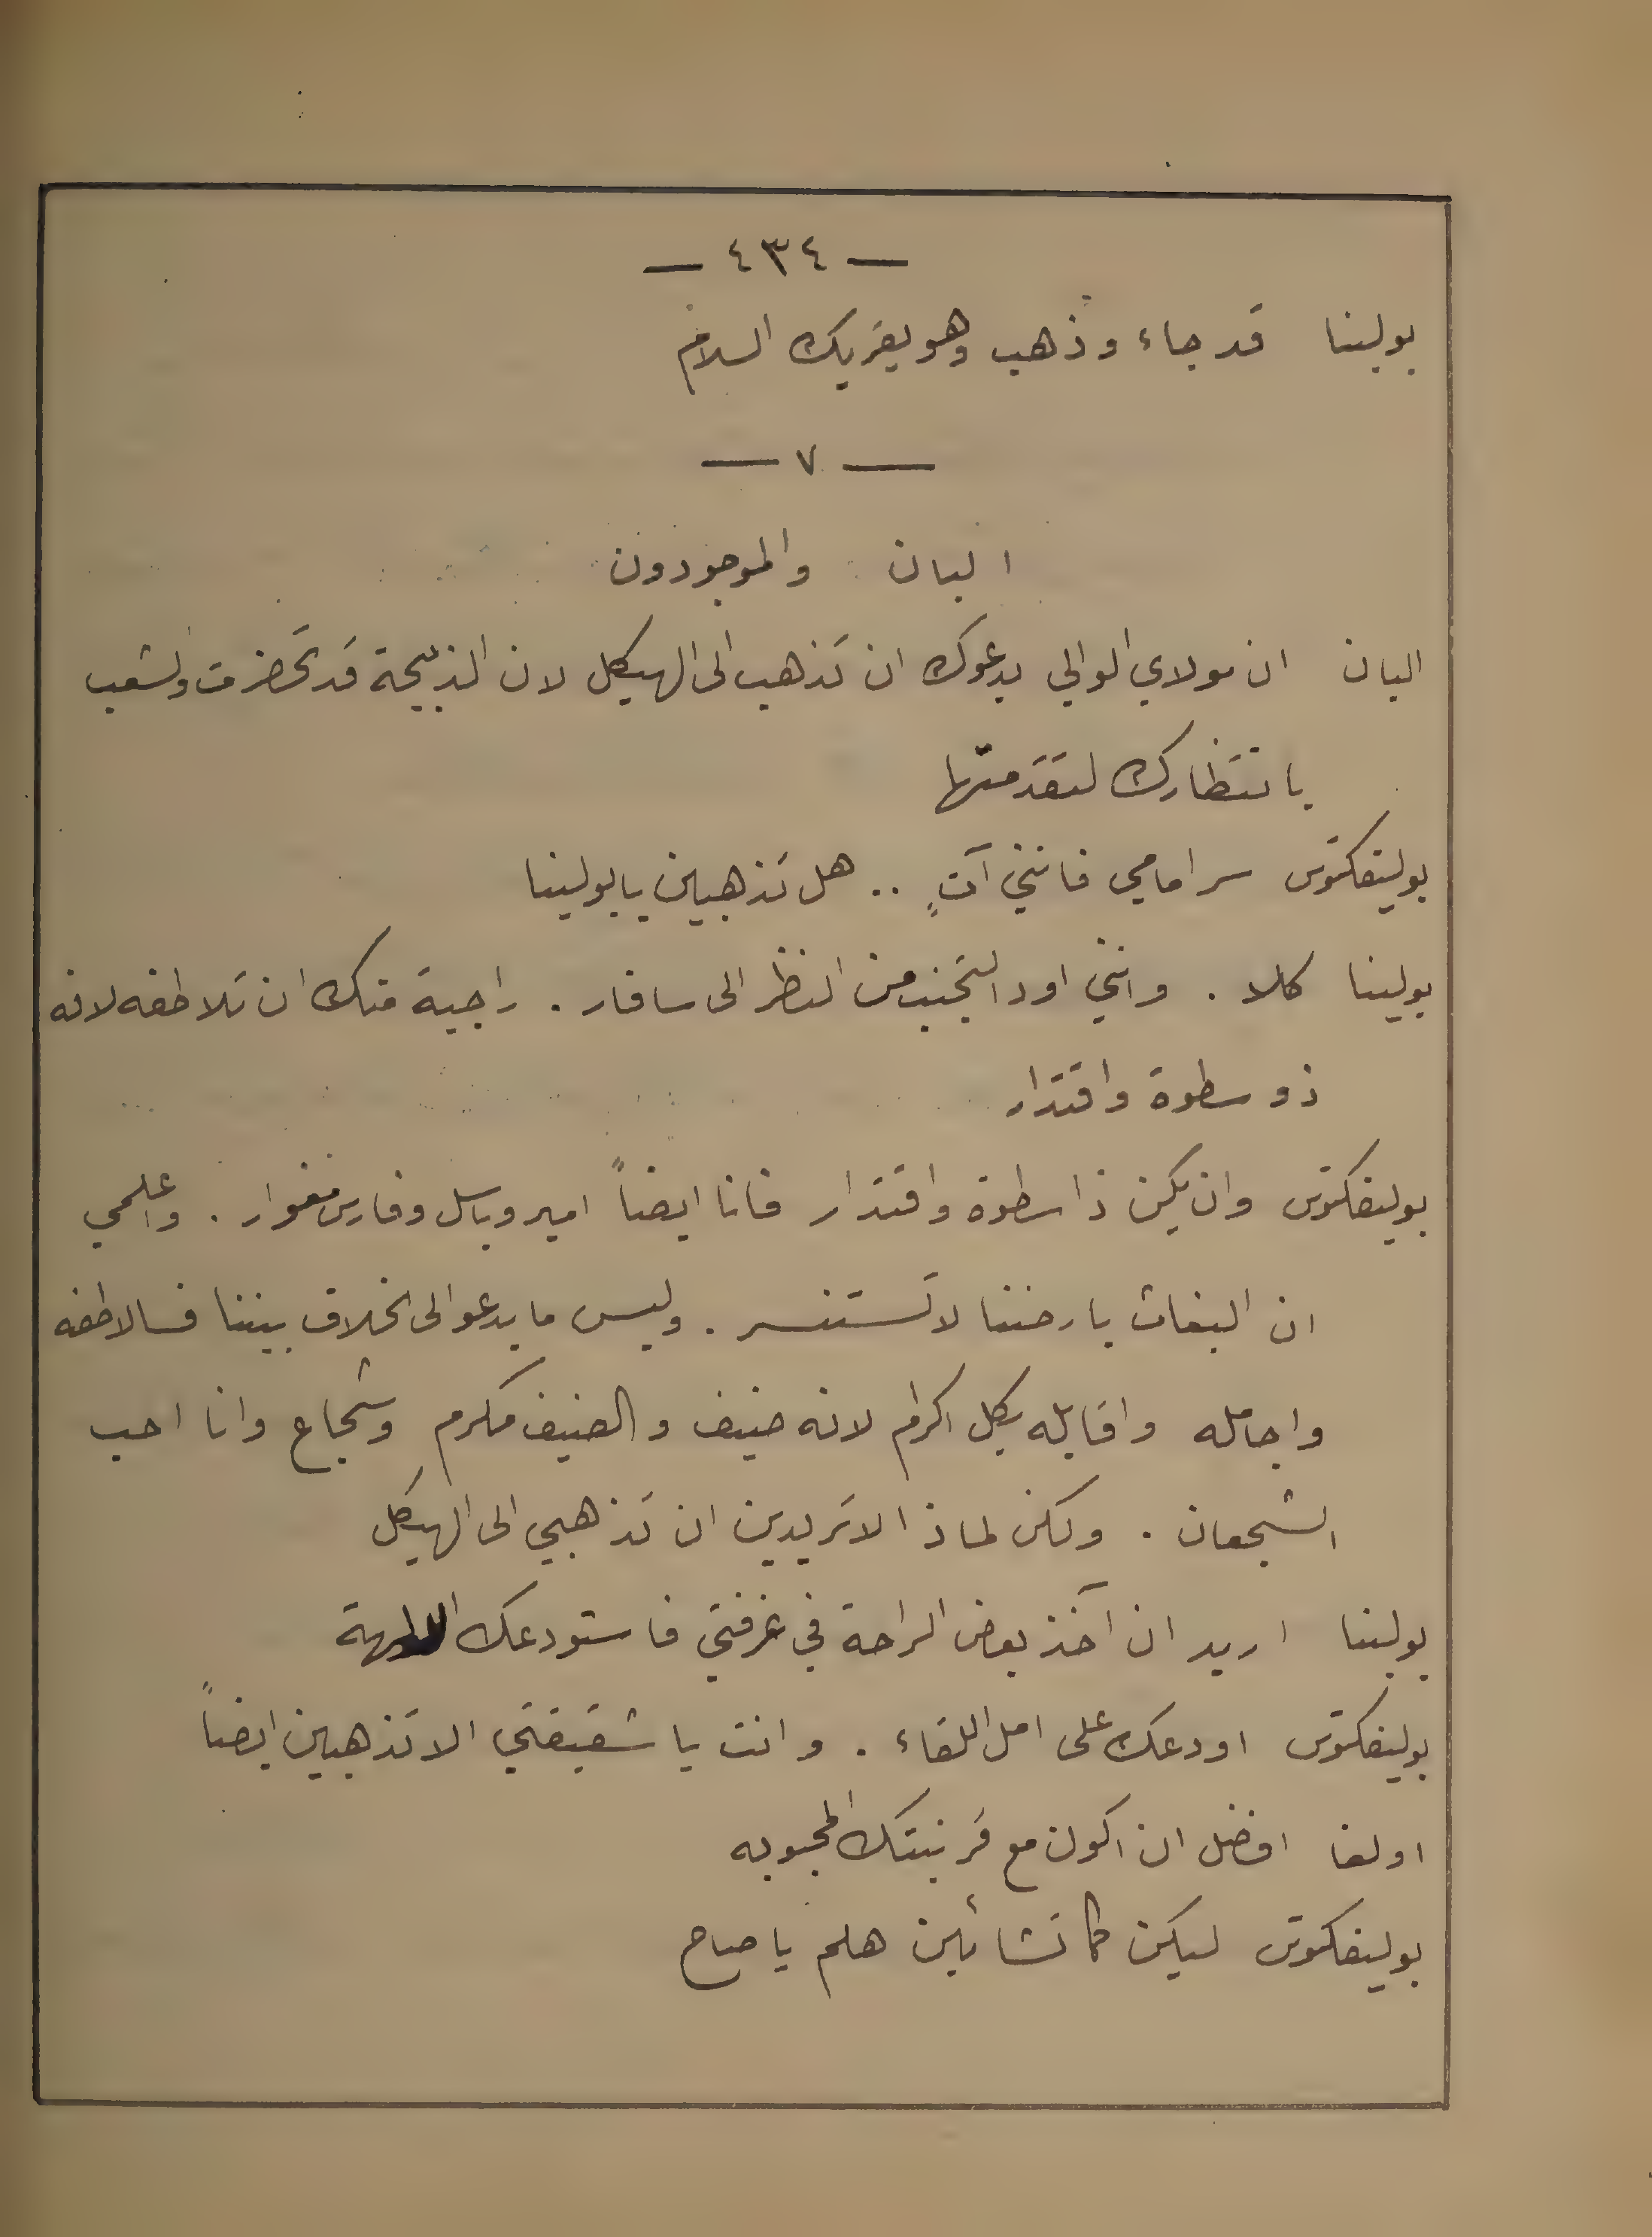 — ٤٣٤ —
بولينا قد جاء وذهب وهو يقريك السلام
— ٧ —
البان والموجودون
البان ان مولاي الوالي يدعوك ان تذهب الى الهيكل لان الذبيحة قد تحضرت والشعب
بانتظارك لتقدمتها
بوليفكتوس سر امامي فانني آتٍ .. هل تذهبين يا بولينا
بولينا كلا . وانني اود التجنب من النظر الى سافار . راجية منك ان تلاطفه لانه
ذو سطوة واقتدار
بوليفكتوس وان يكن ذا سطوة واقتدار فانا ايضاً امير وباسل وفارس مغوار . واعلمي
ان البغاث بارضنا لا تستنسر . وليس ما يدعو الى الخلاف بيننا فسالاطفه
واجامله واقابله بكل اكرام لانه ضيف والضيف مكرم وشجاع وانا احب
الشجعان . ولكن لماذا لا تريدين ان تذهبي الى الهيكل
بولينا اريد ان آخذ بعض الراحة في غرفتي فاستودعك الالهة
بوليفكتوس اودعك على امل اللقاء . وانت يا شقيقتي الا تذهبين ايضاً
اولغا افضل ان اكون مع قرينتك المحبوبه
بوليفكتوس ليكن كما تشائين هلم يا صاح